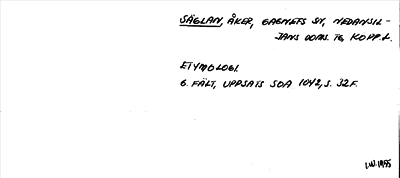 SÄGLAN, ÅKER, GAGNEFS SN, NEDANSIL-
JANS DOMS. TG, KOPP. L.
ETYMOLOGI.
G. FÄLT, UPPSATS SOA 1042, S. 32 F.
I.W. 1955